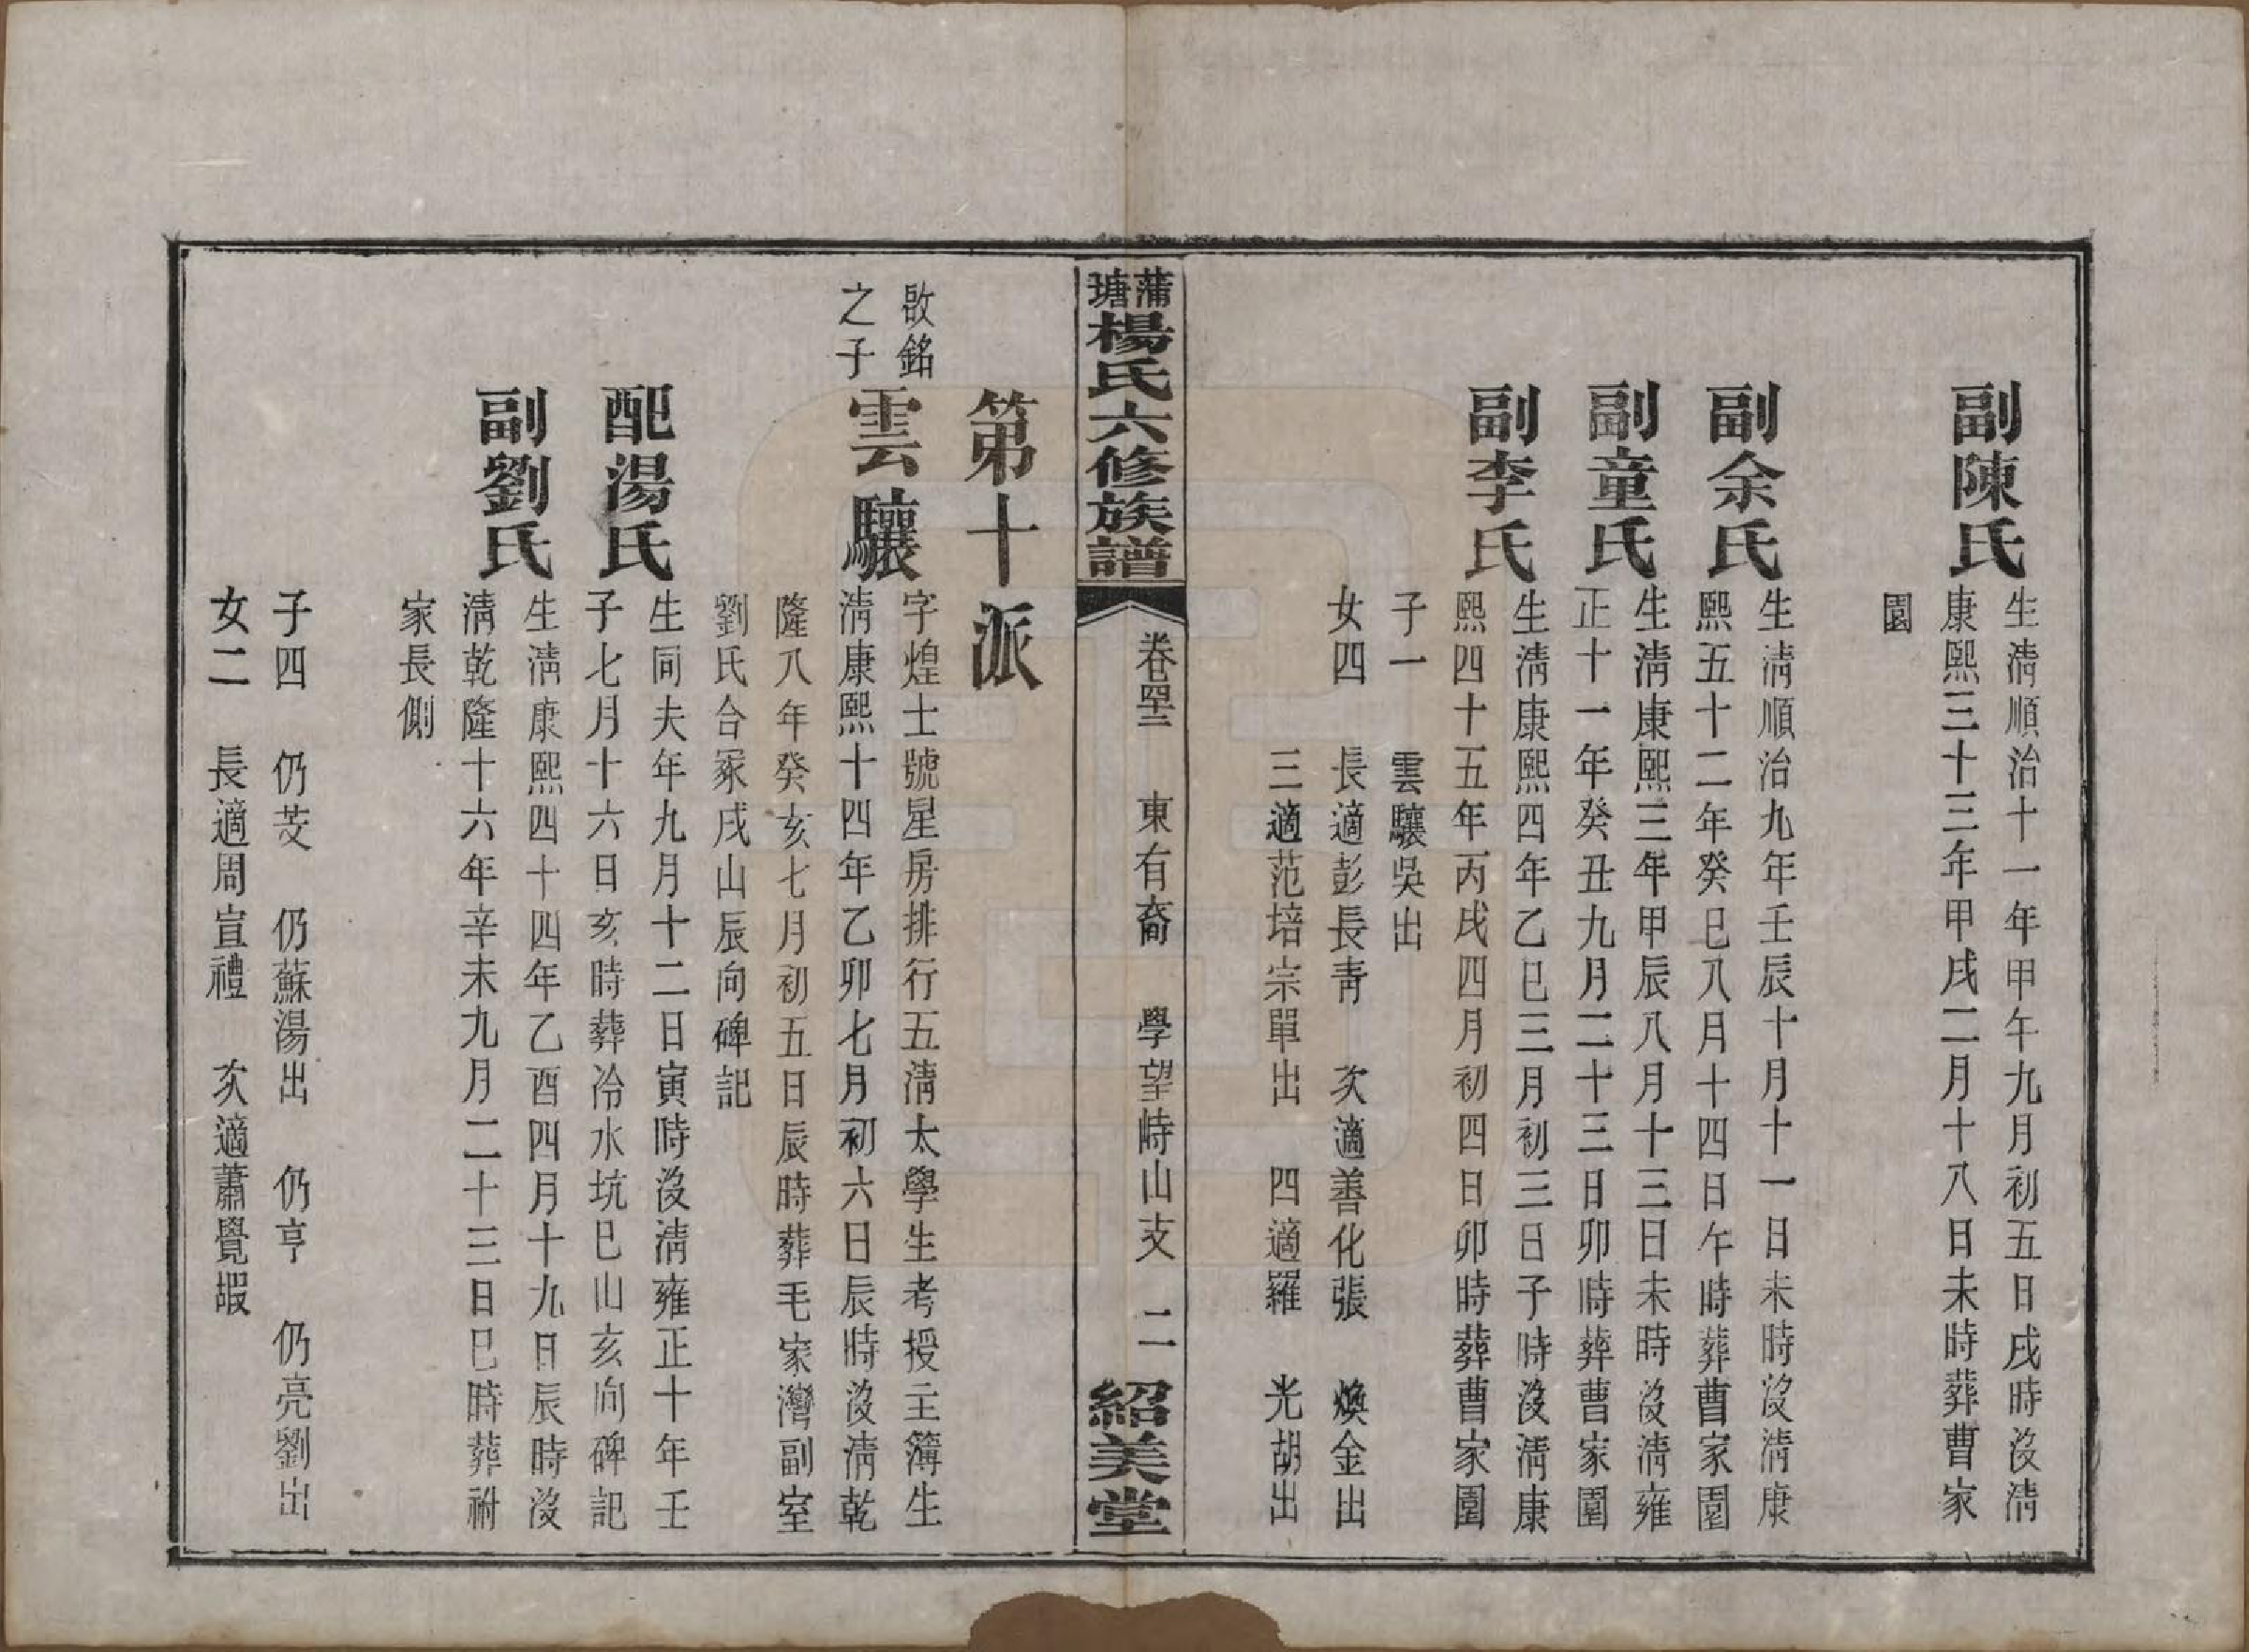 副陳氏
生淸順治十一年甲午九月初五日戌時沒淸
康熙三十三年甲戌二月十八日未時葬曹家
園
副余氏
生淸順治九年壬辰十月十一日未時沒淸康
熙五十二年癸巳八月十四日午時葬曹家園
副童氏
生淸康熙三年甲辰八月十三日未時沒淸雍
正十一年癸丑九月二十三日卯時葬曹家園
副李氏
生淸康熙四年乙巳三月初三日子時沒淸康
熙四十五年丙戌四月初四日卯時葬曹家園
子一 雲驤吳出
女四 長適彭長靑 次適善化張 煥金出
三適范培宗單出 四適羅 光胡出
蒲塘楊氏六修族譜 卷四十三 東有裔 學望峙山支 二 紹美堂
第十派
啟銘
之子
雲驤
字煌士號星房排行五淸太學生考授主簿生
淸康熙十四年乙卯七月初六日辰時沒淸乾
隆八年癸亥七月初五日辰時葬毛家灣副室
劉氏合冢戌山辰向碑記
配湯氏
生同夫年九月十二日寅時沒淸雍正十年壬
子七月十六日亥時葬冷水坑巳山亥向碑記
副劉氏
生淸康熙四十四年乙酉四月十九日辰時沒
淸乾隆十六年辛未九月二十三日巳時葬祔
家長側
子四 仍芠 仍蘇湯出 仍亨 仍亮劉出
女二 長適周宣禮 次適蕭覺嘏